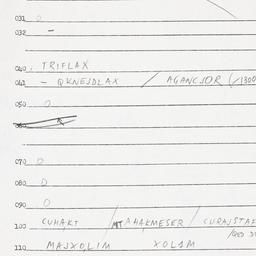 031 0
032 -
040 TRIFLAX
041 - QKNEJDLAX / AGANCJOR (/1300
050 0
060
070 0
080 0
090 0
100 CUHAKT / MT AHAKMESER / CURAJSTAF
110 MAJXOLIM XOLAM